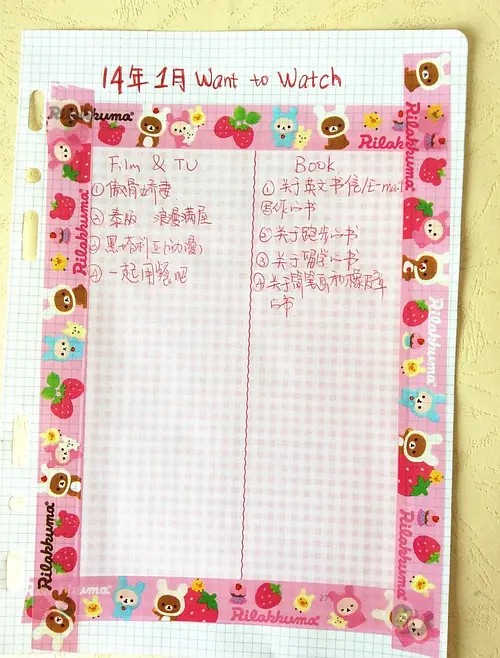 14年1月 Want to Watch
Film & TV
① 傲骨娇妻
② 泰版 浪漫满屋
③ 黑塔利亚(动漫)
④ 一起用餐吧
Book
① 关于英文书信/E-mail
写作的书
② 关于跑步的书
③ 关于留学的书
④ 关于简笔画和橡皮章
的书
Rilakkuma
Rilakkuma
Rilakkuma
Rilakkuma
Rilakkuma
Rilakkuma
Rilakkuma
Rilakkuma